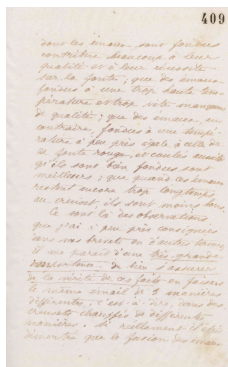 409
dont les émaux sont fondus
contribue beaucoup à leur
qualité et à leur réussite
sur la fonte; que des émaux
fondus à une trop haute tem-
pérature et trop vite manquent
de qualité; que des émaux, au
contraire, fondus à une tempé-
rature à peu près égale à celle de
la fonte rouge, et coulés aussitôt
qu'ils sont bien fondus, sont
meilleurs; que quand les émaux
restent encore trop longtemps
au creuset, ils sont moins bons.
Ce sont là des observations
que j'ai à peu près consignées
dans nos brevets en d'autres termes
il me parait d'une très grande
importance de bien s'assurer
de la vérité de ces faits en faisant
le même émail de 3 manières
différentes, c'est à dire, dans des
creusets chauffés de différentes
manières. Si réellement il était
démontré que la fusion des émaux